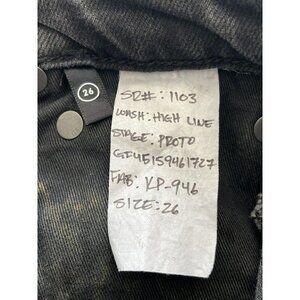 26
SR#: 1103
WASH: HIGH LINE
STAGE: PROTO
GF4E159461727
FAB: KP-946
SIZE: 26